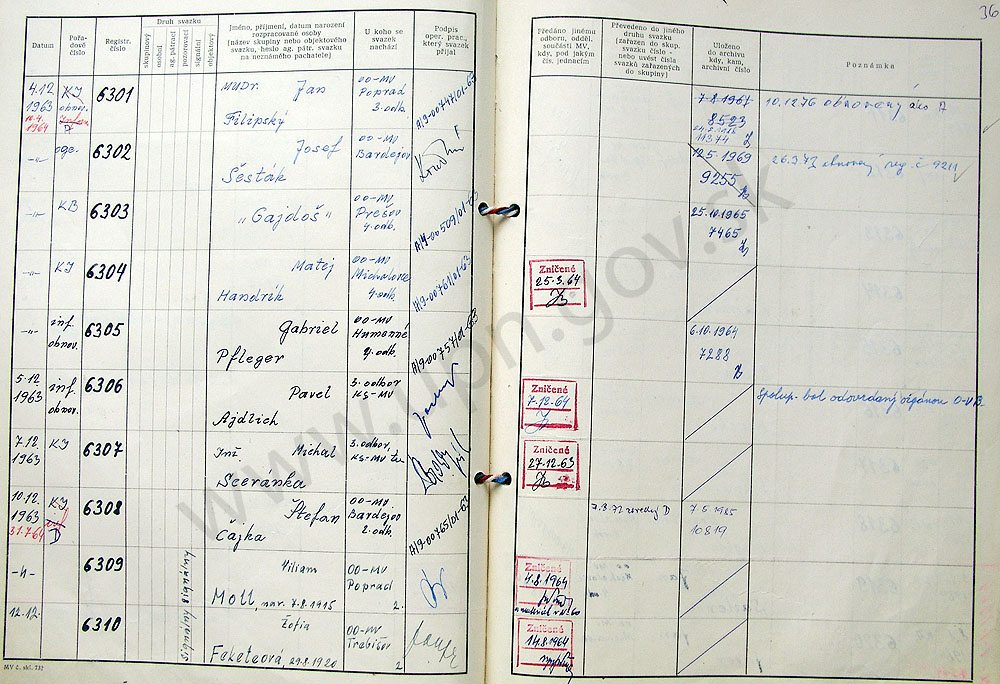 36
Datum
Pořadové číslo
Registr. číslo
Druh svazku
skupinový
osobní
ag. pátrací
pozorovací
signální
objektový
Jméno, příjmení, datum narození
rozpracované osoby
(název skupiny nebo objektového
svazku, heslo ag. pátr. svazku
na neznámého pachatele)
U koho se
svazek
nachází
Podpis
oper. prac.,
který svazek
přijal
Předáno jinému
odboru, odděl.
součásti MV,
kdy, pod jakým
čís. jednacím
Převedeno do jiného
druhu svazku
(zařazen do skup.
svazku číslo -
nebo uvést čísla
svazků zařazených
do skupiny)
Uloženo
do archivu
kdy, kam,
archivní číslo
Poznámka
4.12. 1963
KI obnov.
1964
6301
MUDr. Jan
Filipský
OO-MV
Poprad
3. odb.
A/9-00747/01-63
7.8.1967
8523
11374
10.12.76 obnovený ako D
-"-
6302
Josef
Šesták
OO-MV
Bardejov
12.5.1969
9255
26.3.73 obnovený reg. č. 9211
-"-
KB
6303
"Gajdoš"
OO-MV
Prešov
4. odb.
A/4-00509/01-63
25.10.1965
7465
-"-
KI
6304
Matej
Handrík
OO-MV
Michalovce
4. odb
A/9-00761/01-63
Zničené
25-3.64
-"-
inf. obnov.
6305
Gabriel
Pfleger
OO-MV
Humenné
2. odb.
A/9-00757/01-63
6.10.1964
7288
5.12. 1963
inf. obnov.
6306
Pavel
Ajdlich
3. odbor
KS-MV
Zničené
7.-12.-64
7.12. 1963
KI
6307
Inž. Michal
Sceránka
3. odbor,
KS-MV
Zničené
27.-12.-63
10.12. 1963
31.7.64
KI
D
6308
Štefan
Čajka
OO-MV
Bardejov
2. odb.
A/9-00765/01-63
10819
-"-
signálny
6309
Viliam
Moll, nar. 7.8.1915
OO-MV
Poprad
2.
Zničené
4.8.1964
12.12.
signálny
6310
Žofia
Feketeová, 29.8.1920
OO-MV
Trebišov
2
Zničené
14.8.1964
MV č. skl. 732
www.upn.gov.sk